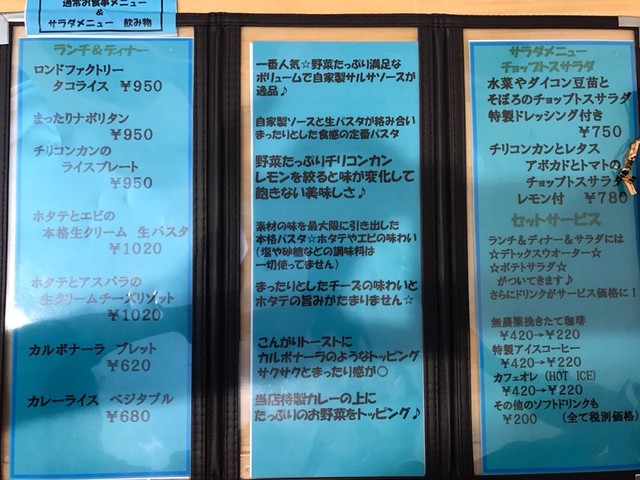 通常お食事メニュー
&
サラダメニュー 飲み物
ランチ&ディナー
ロンドファクトリー
タコライス ￥950
まったりナポリタン
￥950
チリコンカンの
ライスプレート
￥950
ホタテとエビの
本格生クリーム 生パスタ
￥1020
ホタテとアスパラの
生クリームチーズリゾット
￥1020
カルボナーラ ブレット
￥620
カレーライス ベジタブル
￥680
一番人気☆野菜たっぷり満足な
ボリュームで自家製サルサソースが
逸品♪
自家製ソースと生パスタが絡み合い
まったりとした食感の定番パスタ
野菜たっぷりチリコンカン
レモンを絞ると味が変化して
飽きない美味しさ♪
素材の味を最大限に引き出した
本格パスタ☆ホタテやエビの味わい
(塩や砂糖などの調味料は
一切使ってません)
まったりとしたチーズの味わいと
ホタテの旨みがたまりません☆
こんがりトーストに
カルボナーラのようなトッピング
サクサクとまったり感が○
当店特製カレーの上に
たっぷりのお野菜をトッピング♪
サラダメニュー
チョップトスサラダ
水菜やダイコン豆苗と
そぼろのチョップトスサラダ
特製ドレッシング付き
￥750
チリコンカンとレタス
アボカドとトマトの
チョップトスサラダ
レモン付 ￥780
セットサービス
ランチ&ディナー&サラダには
☆デトックスウオーター☆
☆ポテトサラダ☆
がついてきます♪
さらにドリンクがサービス価格に!
無農薬挽きたて珈琲
￥420→￥220
特製アイスコーヒー
￥420→￥220
カフェオレ(HOT ICE)
￥420→￥220
その他のソフトドリンクも
￥200 (全て税別価格)